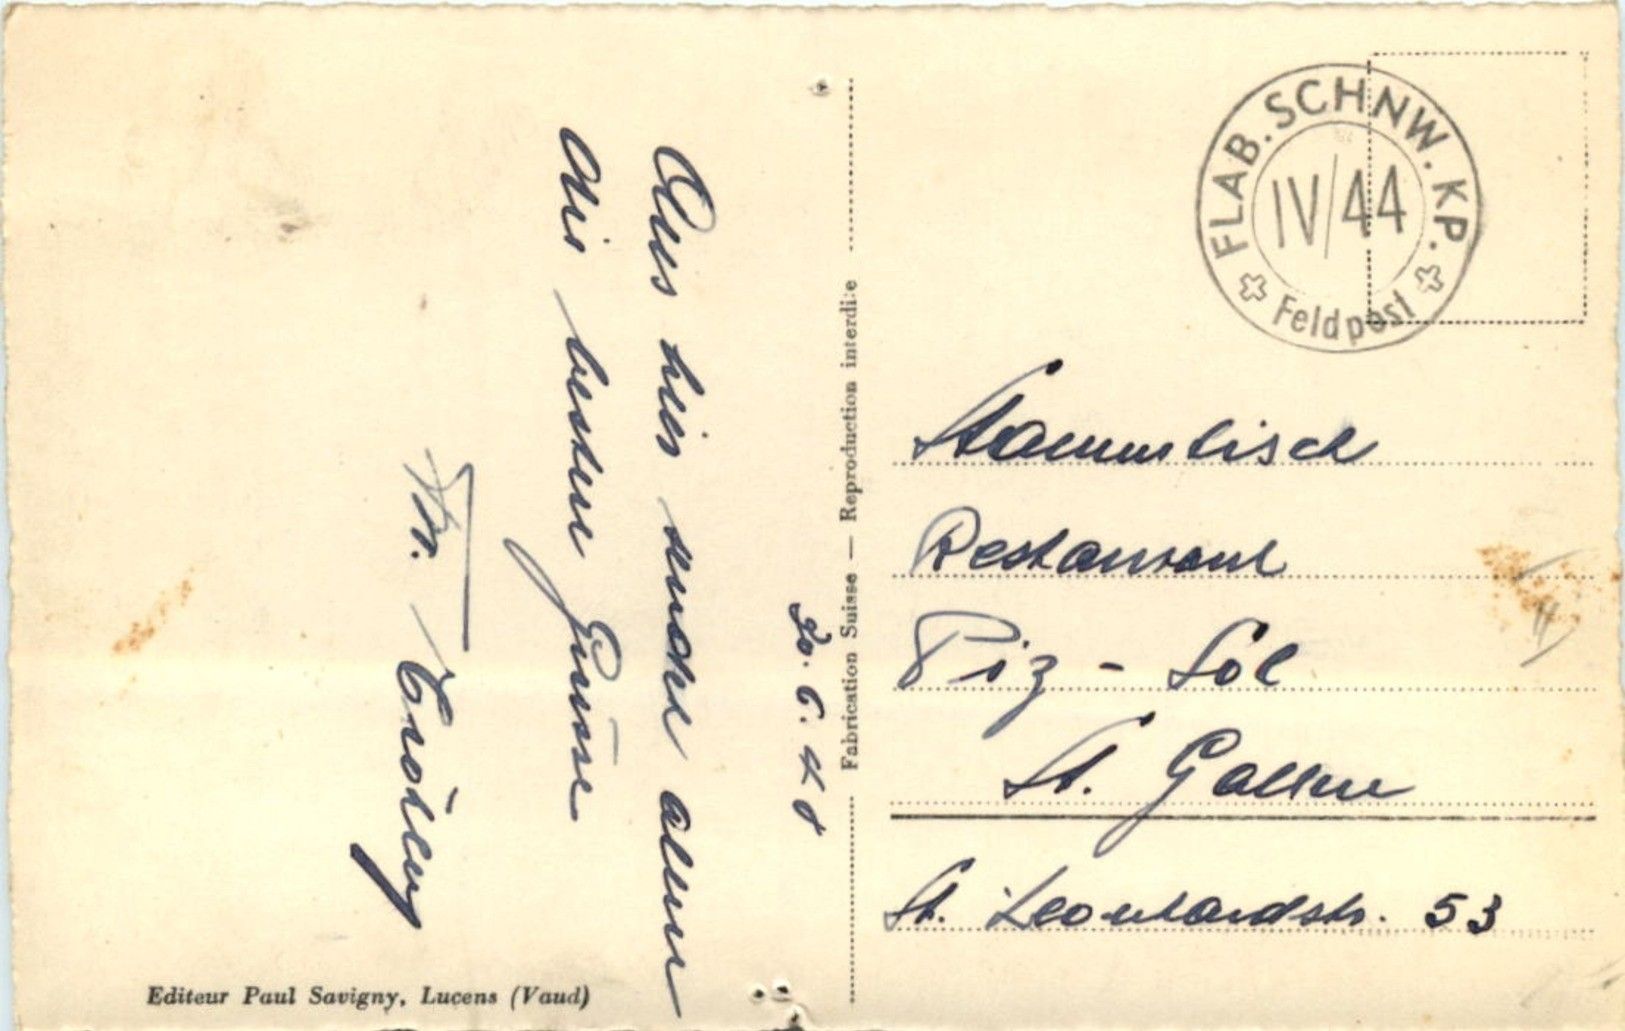 20. 6. 48
Aus hier sende allen
die besten Grüsse
Fr.
Fabrication Suisse — Reproduction interdite
Editeur Paul Savigny, Lucens (Vaud)
FLAB. SCHNW. KP.
IV/44
Feldpost
Stammtisch
Restaurant
Piz - Sol
St. Gallen
St. Leonhardstr. 53